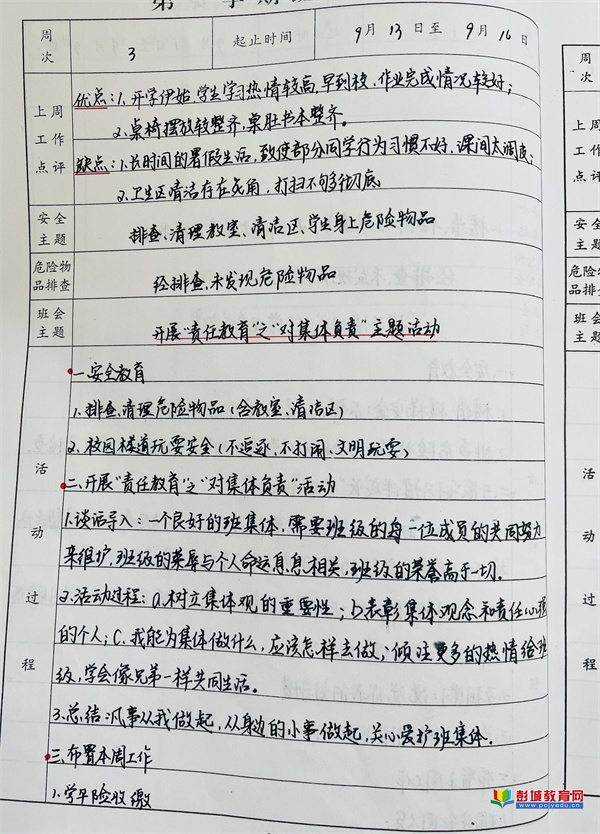 周次 3 起止时间 9月13日至9月16日
上周工作点评
优点:1、开学伊始,学生学习热情较高,早到校,作业完成情况较好;
2、桌椅摆放较整齐,桌肚书本整齐。
缺点:1、长时间的暑假生活,致使部分同学行为习惯不好,课间太调皮;
2、卫生区清洁存在死角,打扫不够彻底
安全主题 排查、清理教室、清洁区、学生身上危险物品
危险物品排查 经排查,未发现危险物品
班会主题 开展“责任教育”之“对集体负责”主题活动
活动过程
一.安全教育
1.排查、清理危险物品(含教室、清洁区)
2、校园楼道玩耍安全(不追逐、不打闹、文明玩耍)
二、开展“责任教育”之“对集体负责”活动
1.谈话导入:一个良好的班集体,需要班级的每一位成员的共同努力
来维护,班级的荣辱与个人命运息息相关,班级的荣誉高于一切。
2.活动过程:a.树立集体观的重要性;b表彰集体观念和责任心强
的个人;C.我能为集体做什么,应该怎样去做;倾注更多的热情给班
级,学会像兄弟一样共同生活。
3.总结:凡事从我做起,从身边的小事做起,关心爱护班集体.
三、布置本周工作
1.学平险收缴
周次
上周工作点评
安全主题
危险物品排查
班会主题
活动过程
彭城教育网
www.pcjyedu.cn